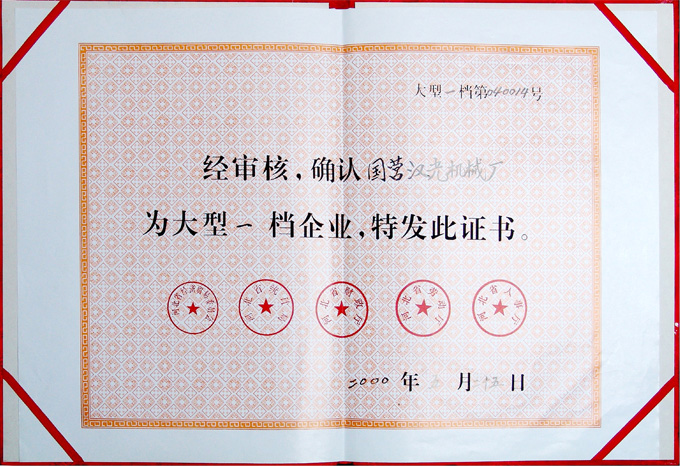 大型一档第040014号
经审核，确认国营汉光机械厂
为大型一档企业，特发此证书。
河北省经济贸易委员会
河北省统计局
河北省财政厅
河北省劳动厅
河北省人事厅
2000年 月 十五日